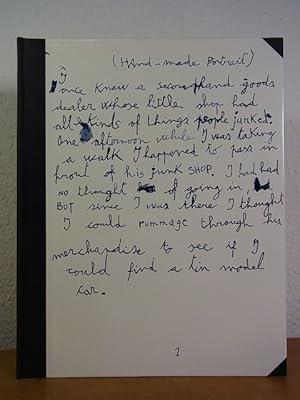 (Hand-made Portrait)
I
once knew a secondhand goods
dealer whose little shop had
all kinds of things people junked.
One afternoon while I was taking
a walk I happened to pass in
front of his junk SHOP. I had had
NO thought of going in,
BUT since I was there I thought
I could rummage through his
merchandise to see if I
could find a tin model
car.
1